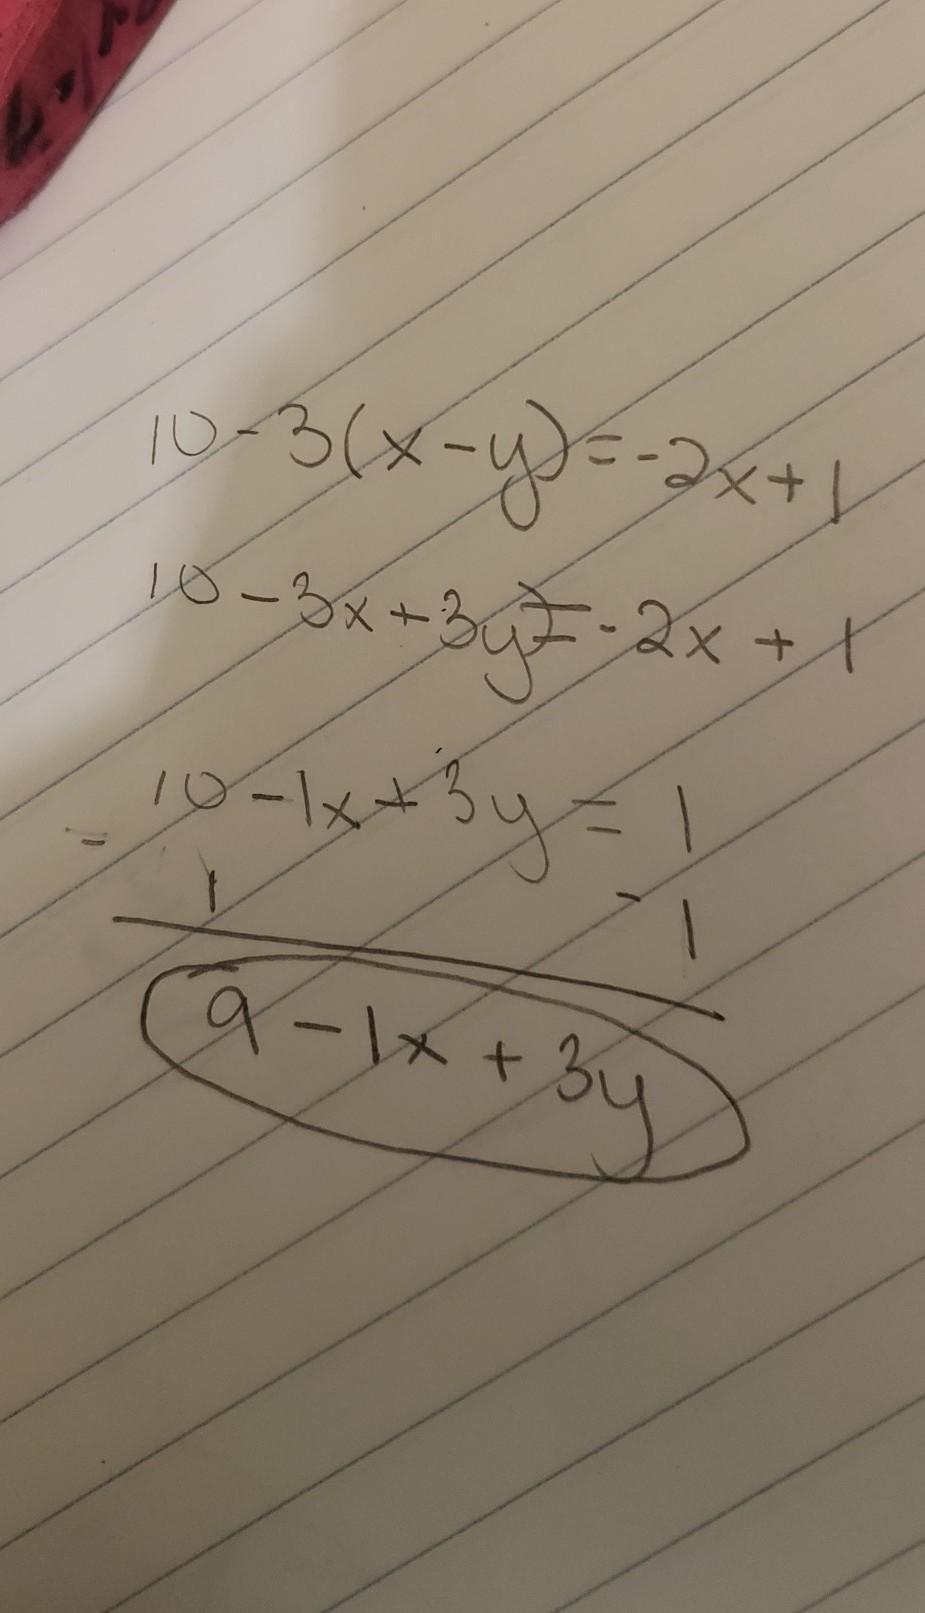 10-3(x-y)=-2x+1
10-3x+3y)=-2x+1
10-1x+3y=1
- 1 -1
9-1x+3y